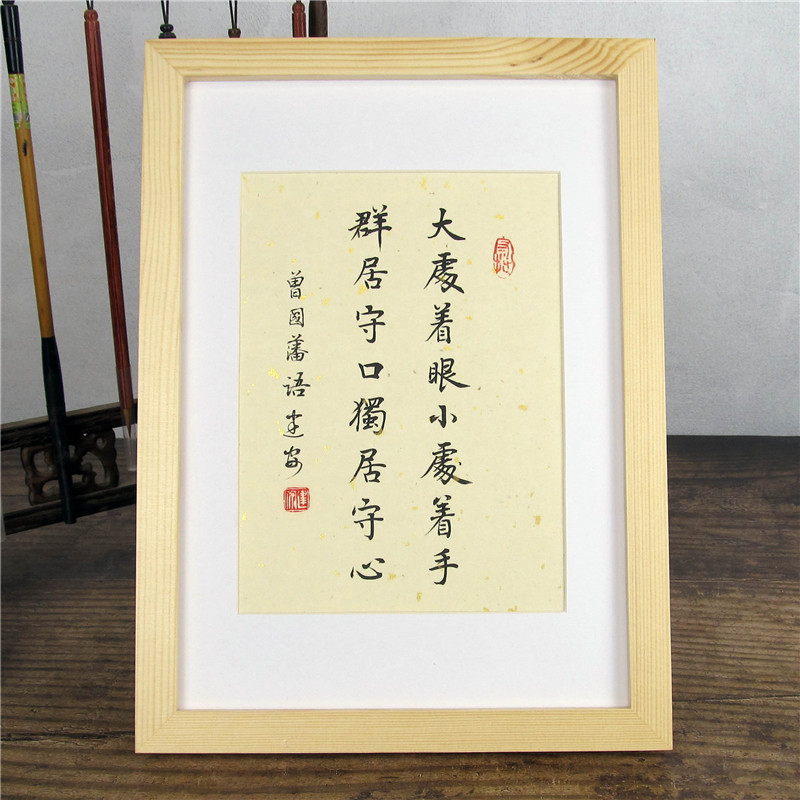 大處着眼小處着手
群居守口獨居守心
曾國藩语建安